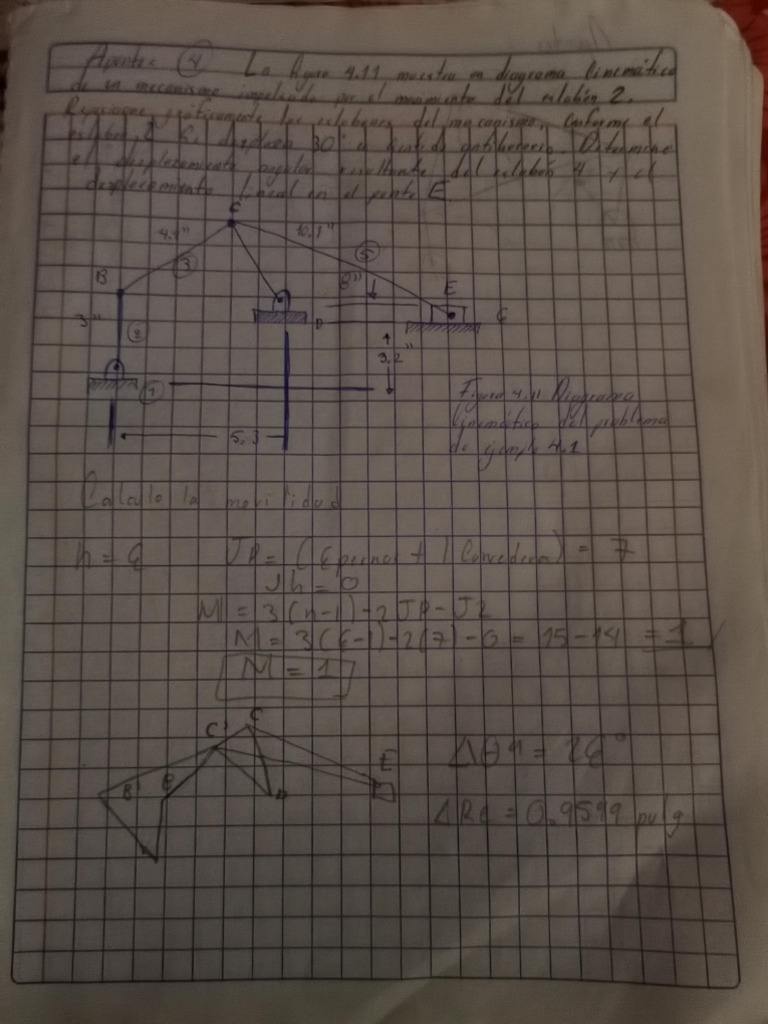 Apunte: 4 La figura 4.11 muestra un diagrama cinemático
de un mecanismo impulsado por el movimiento del eslabón 2.
Reposicione gráficamente los eslabones del mecanismo, conforme el
eslabón 2 se desplaza 30° en sentido antihorario. Determine
el desplazamiento angular resultante del eslabón 4 y el
desplazamiento lineal en el punto E
C
4.4" 10.1"
5
B 3 8" E
D C
3" 2
3.2"
1
5.3
Figura 4.11 Diagrama
cinematico del problema
de ejemplo 4.1
Calculo la movilidad
n = 6 JP = (6 pernos + 1 Corredera) = 7
Jh = 0
M = 3(n-1) - 2JP - J2
M = 3(6-1) - 2(7) - 0 = 15 - 14 = 1
M = 1
C' C
E
B' B D
Δθ4 = 26°
ΔRE = 0.9599 pulg